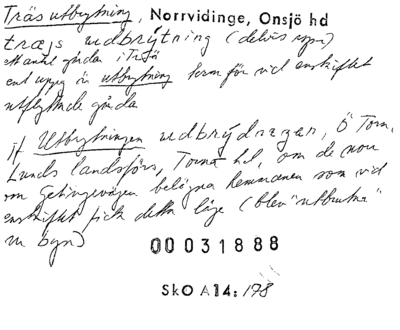 Träs utbrytning, Norrvidinge, Onsjö hd
træjs udbrýtning (delvis
ett antal gårdar i Träs
enl uppg är utbrytning term för vid enskiftet
utflyttade gårdar
jf Utbrytningen udbrýdnegar, Ö Torn,
Lunds landsförs, Torna hd, om de nov
om Getingevägen belägna hemmanen som vid
enskiftet fick detta läge (blev "utbrutna"
ur byn)
00031888
SkO A14: 178